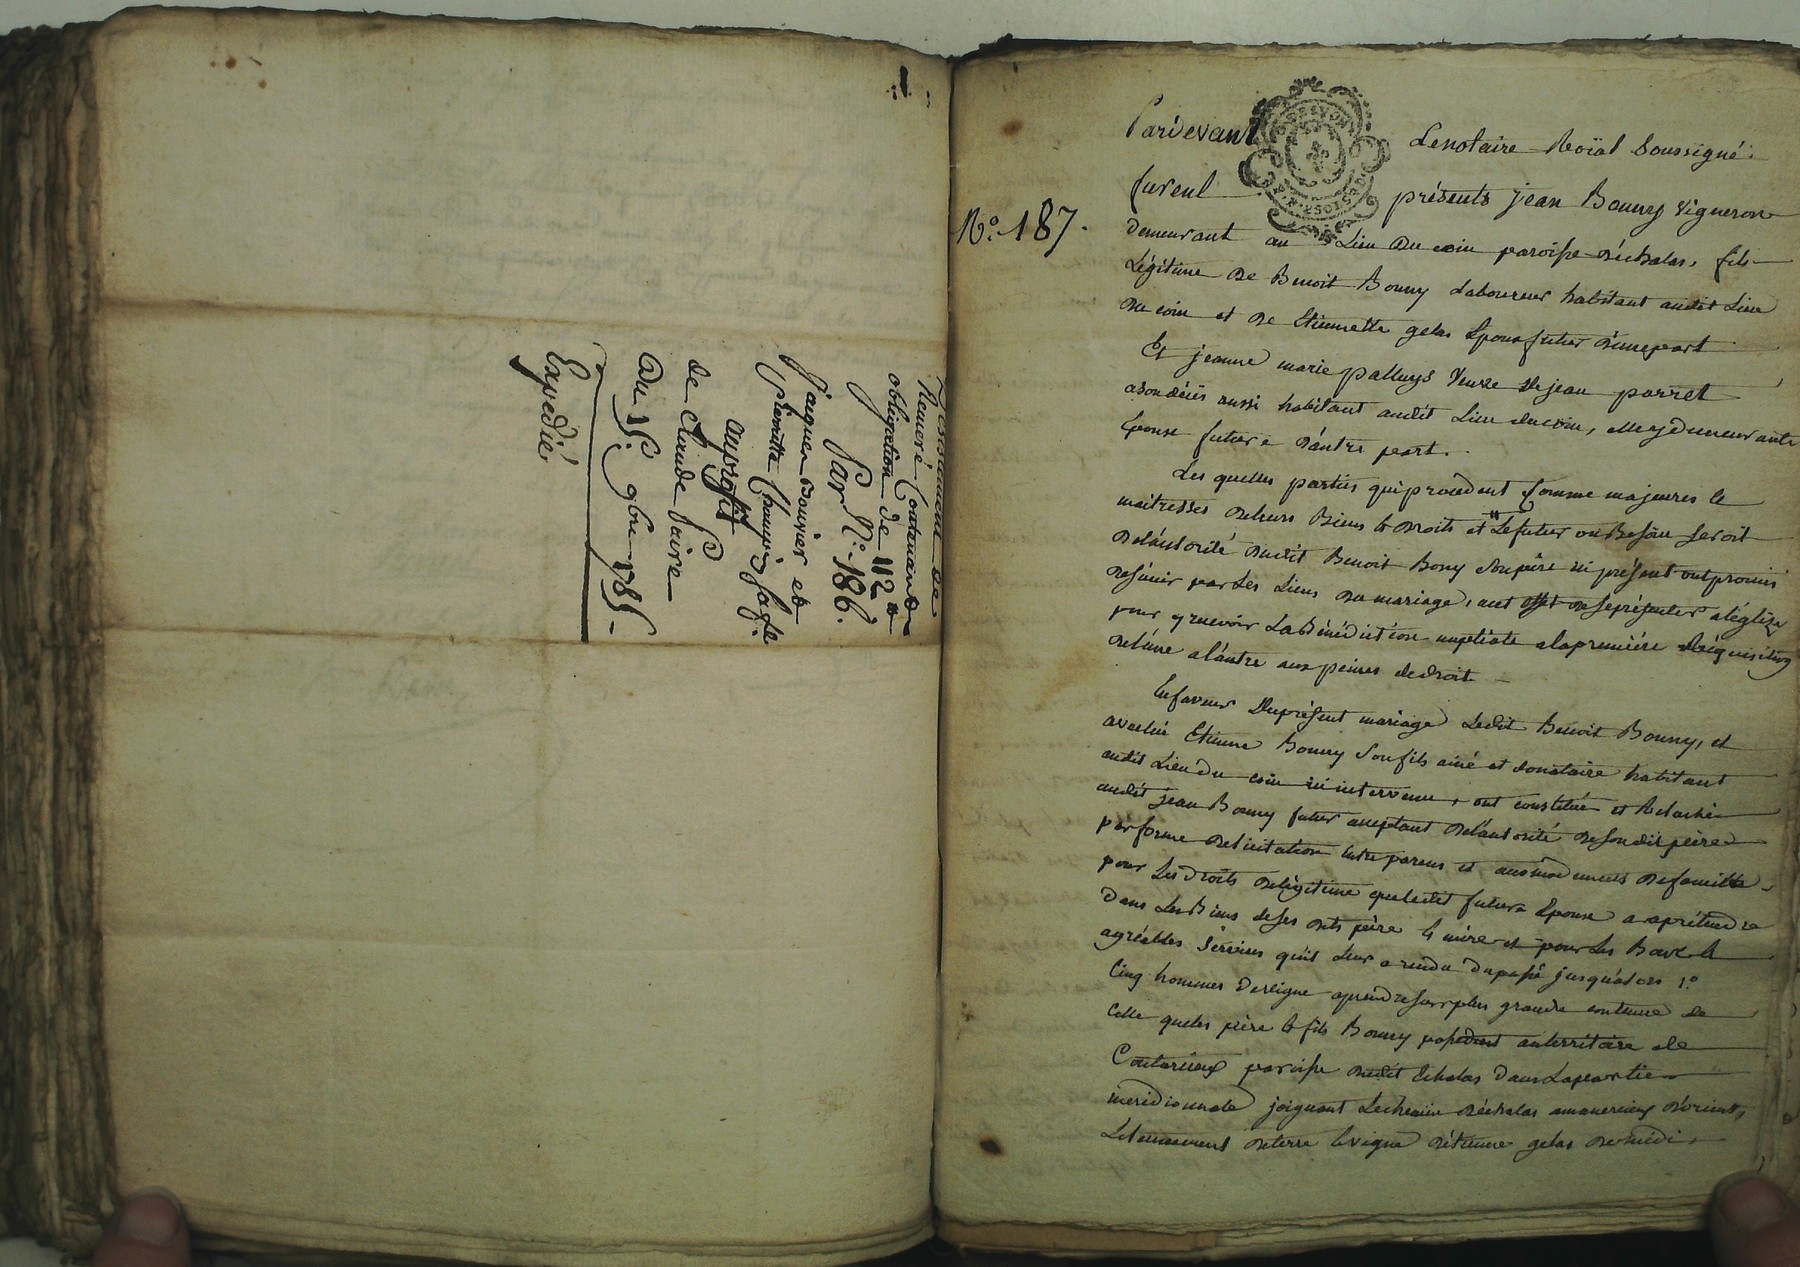 Testament de
Remeré Contenant
obligation de 112 ⁠#
Par N.° 186.
Jaques Bouvier et
pierrette
au profit
de Claude faire
Du 15. 9bre 1785
Expedié
N.° 187.
Pardevant Le notaire Roïal Soussigné
furent présents jean Bonny Vigneron
demeurant au Lieu du coin paroisse déchalas, fils
Légitime de Benoit Bonny Laboureur habitant audit Lieu
du coin et de Etiennette gelas Epoux futur d'une part
Et jeanne marie palluys Veuve de jean porret
a son décès aussi habitant audit Lieu du coin, elle y demeurante
Epouse future d'autre part.
Les quelles parties qui procedent Comme majeures et
maitresses de leurs Biens et Droits et Le futur ou Besoin Seroit
de L'autorité dudit Benoit Bony Son père ici présent ont promis
de s'unir par Les Liens du mariage, de se présenter a l'église
pour y recevoir La Bénédiction nuptiale a la première Réquisition
de L'une a L'autre aux peines de droit
En faveur Du présent mariage Ledit Benoit Bonny, et
avec lui Etienne Bonny Son fils ainé et donataire habitant
audit Lieu du coin ici intervenu, ont constitué et Relaché
audit jean Bonny futur acceptant de L'autorité de son dit père
par forme de licitation Entre parens et de famille
pour Les droits de Légitime que ledit futur Epoux a a prétendre
dans Les Biens de ses dits père et mère et pour Les Bons et
agréables Services qu'il Leur a rendu du passé jusqu'alors 1.°
Cinq hommes de vigne a prendre sur plus grande contenue de
Celle que les père et fils Bonny possedent au territoire de
paroisse dudit Echalas dans La partie
meridionnale joignant Le chemin déchalas a d'orient,
de terre et vigne d'étienne gelas de midi,